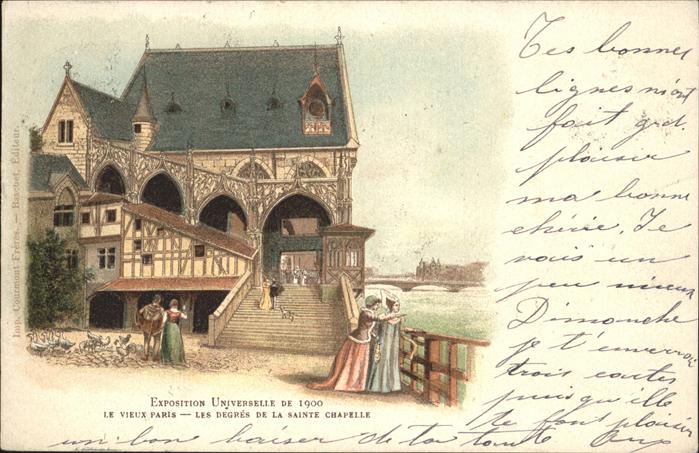 Tes bonnes
lignes m'ont
fait gd.
plaisir
ma bonne
chérie. Je
vais un
peu mieux
Dimanche
je t'enverrai
trois cartes
puisqu'elle
te font plaisir
un bon baiser de ta tante
Imp. Courmont Frères. — Editeur.
EXPOSITION UNIVERSELLE DE 1900
LE VIEUX PARIS — LES DEGRÉS DE LA SAINTE CHAPELLE